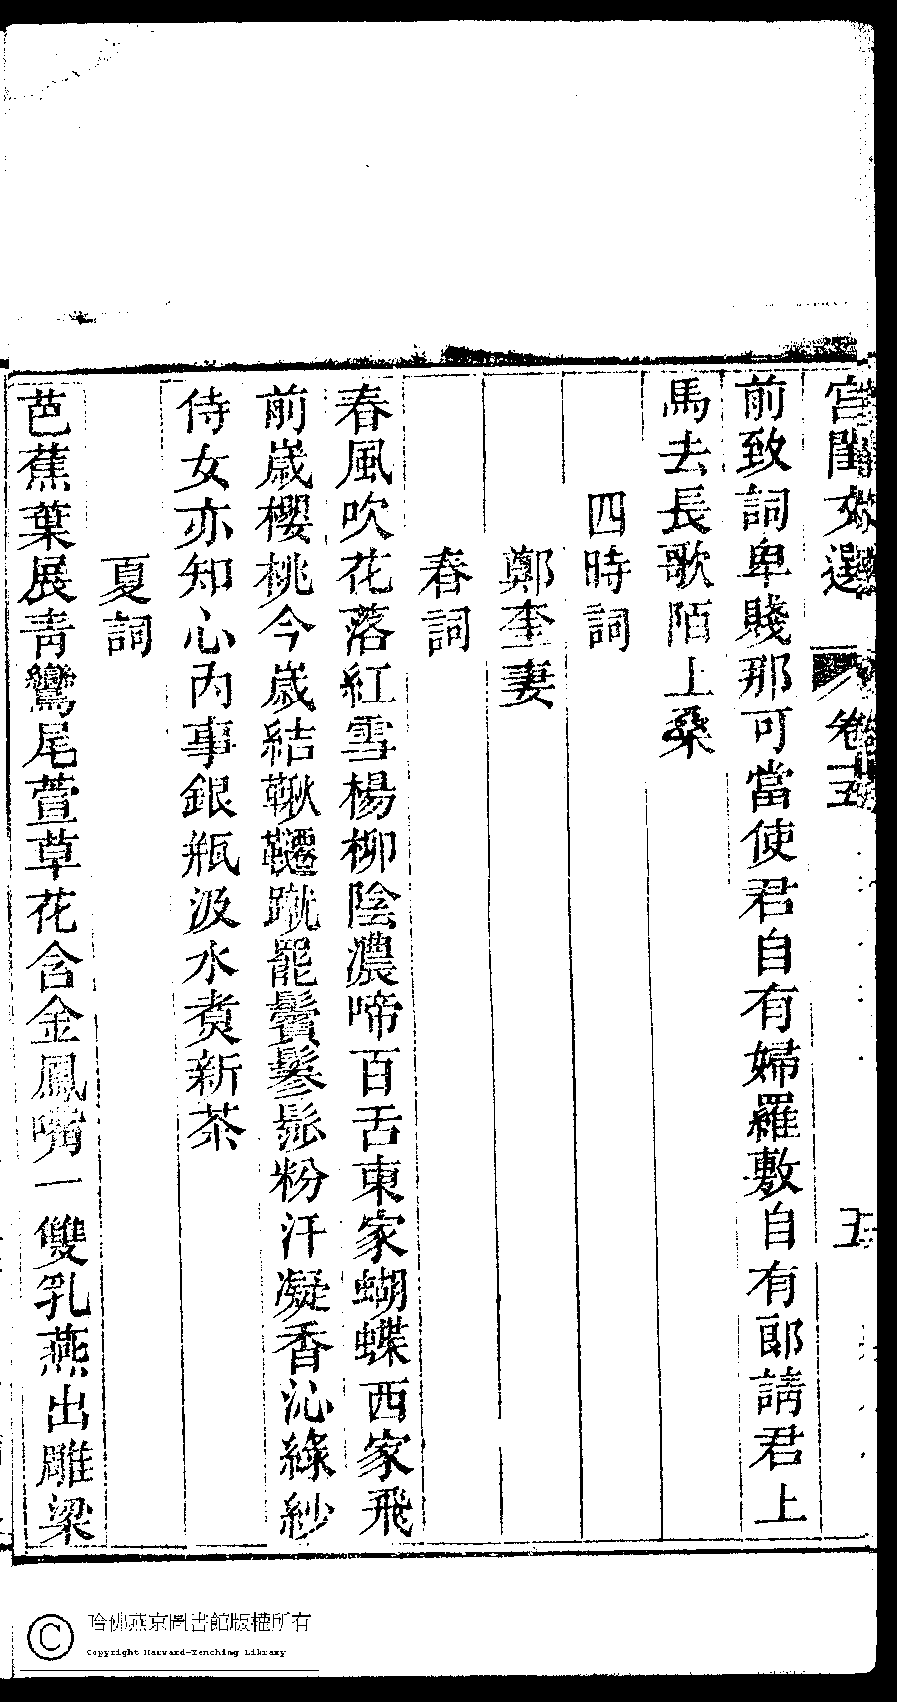 宮閨文選 卷五 五
前致詞卑賤那可當使君自有婦羅敷自有郎請君上
馬去長歌陌上桑
四時詞
鄭奎妻
春詞
春風吹花落紅雪楊柳陰濃啼百舌東家蝴蝶西家飛
前歲櫻桃今歲結鞦韆蹴罷鬢鬖髿粉汗凝香沁綠紗
侍女亦知心內事銀瓶汲水煑新茶
夏詞
芭蕉葉展青鸞尾萱草花含金鳳嘴一雙乳燕出雕梁
哈佛燕京圖書館版權所有
Copyright Harvard-Yenching Library